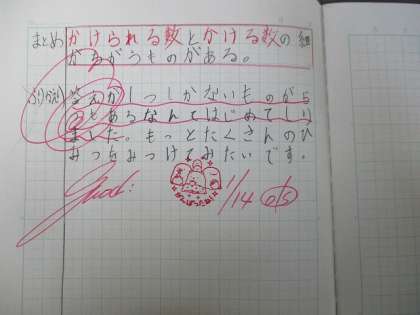 まとめ かけられる数とかける数の組
がちがうものがある。
ふりかえり 答えが1つしかないものが5
ことあるなんてはじめてしり
ました。もっとたくさんのひ
みつをみつけてみたいです。
Good!
がんばったね
1/14